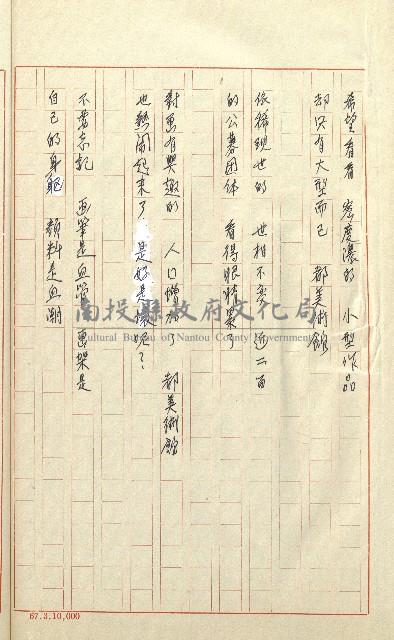 希望看看 密度濃的 小型作品
却只有大型而已 都美術館
依稀現世的 世相不变 近二百
的公募団体 看得眼睛累了
對画有興趣的 人口增加了 都美術館
也熱鬧起來了 是好是壞呢？
不要忘記 画筆是血管 画架是
自己的身軀 顏料是血潮
南投縣政府文化局
Cultural Bureau of Nantou County Government
67.3.10,000